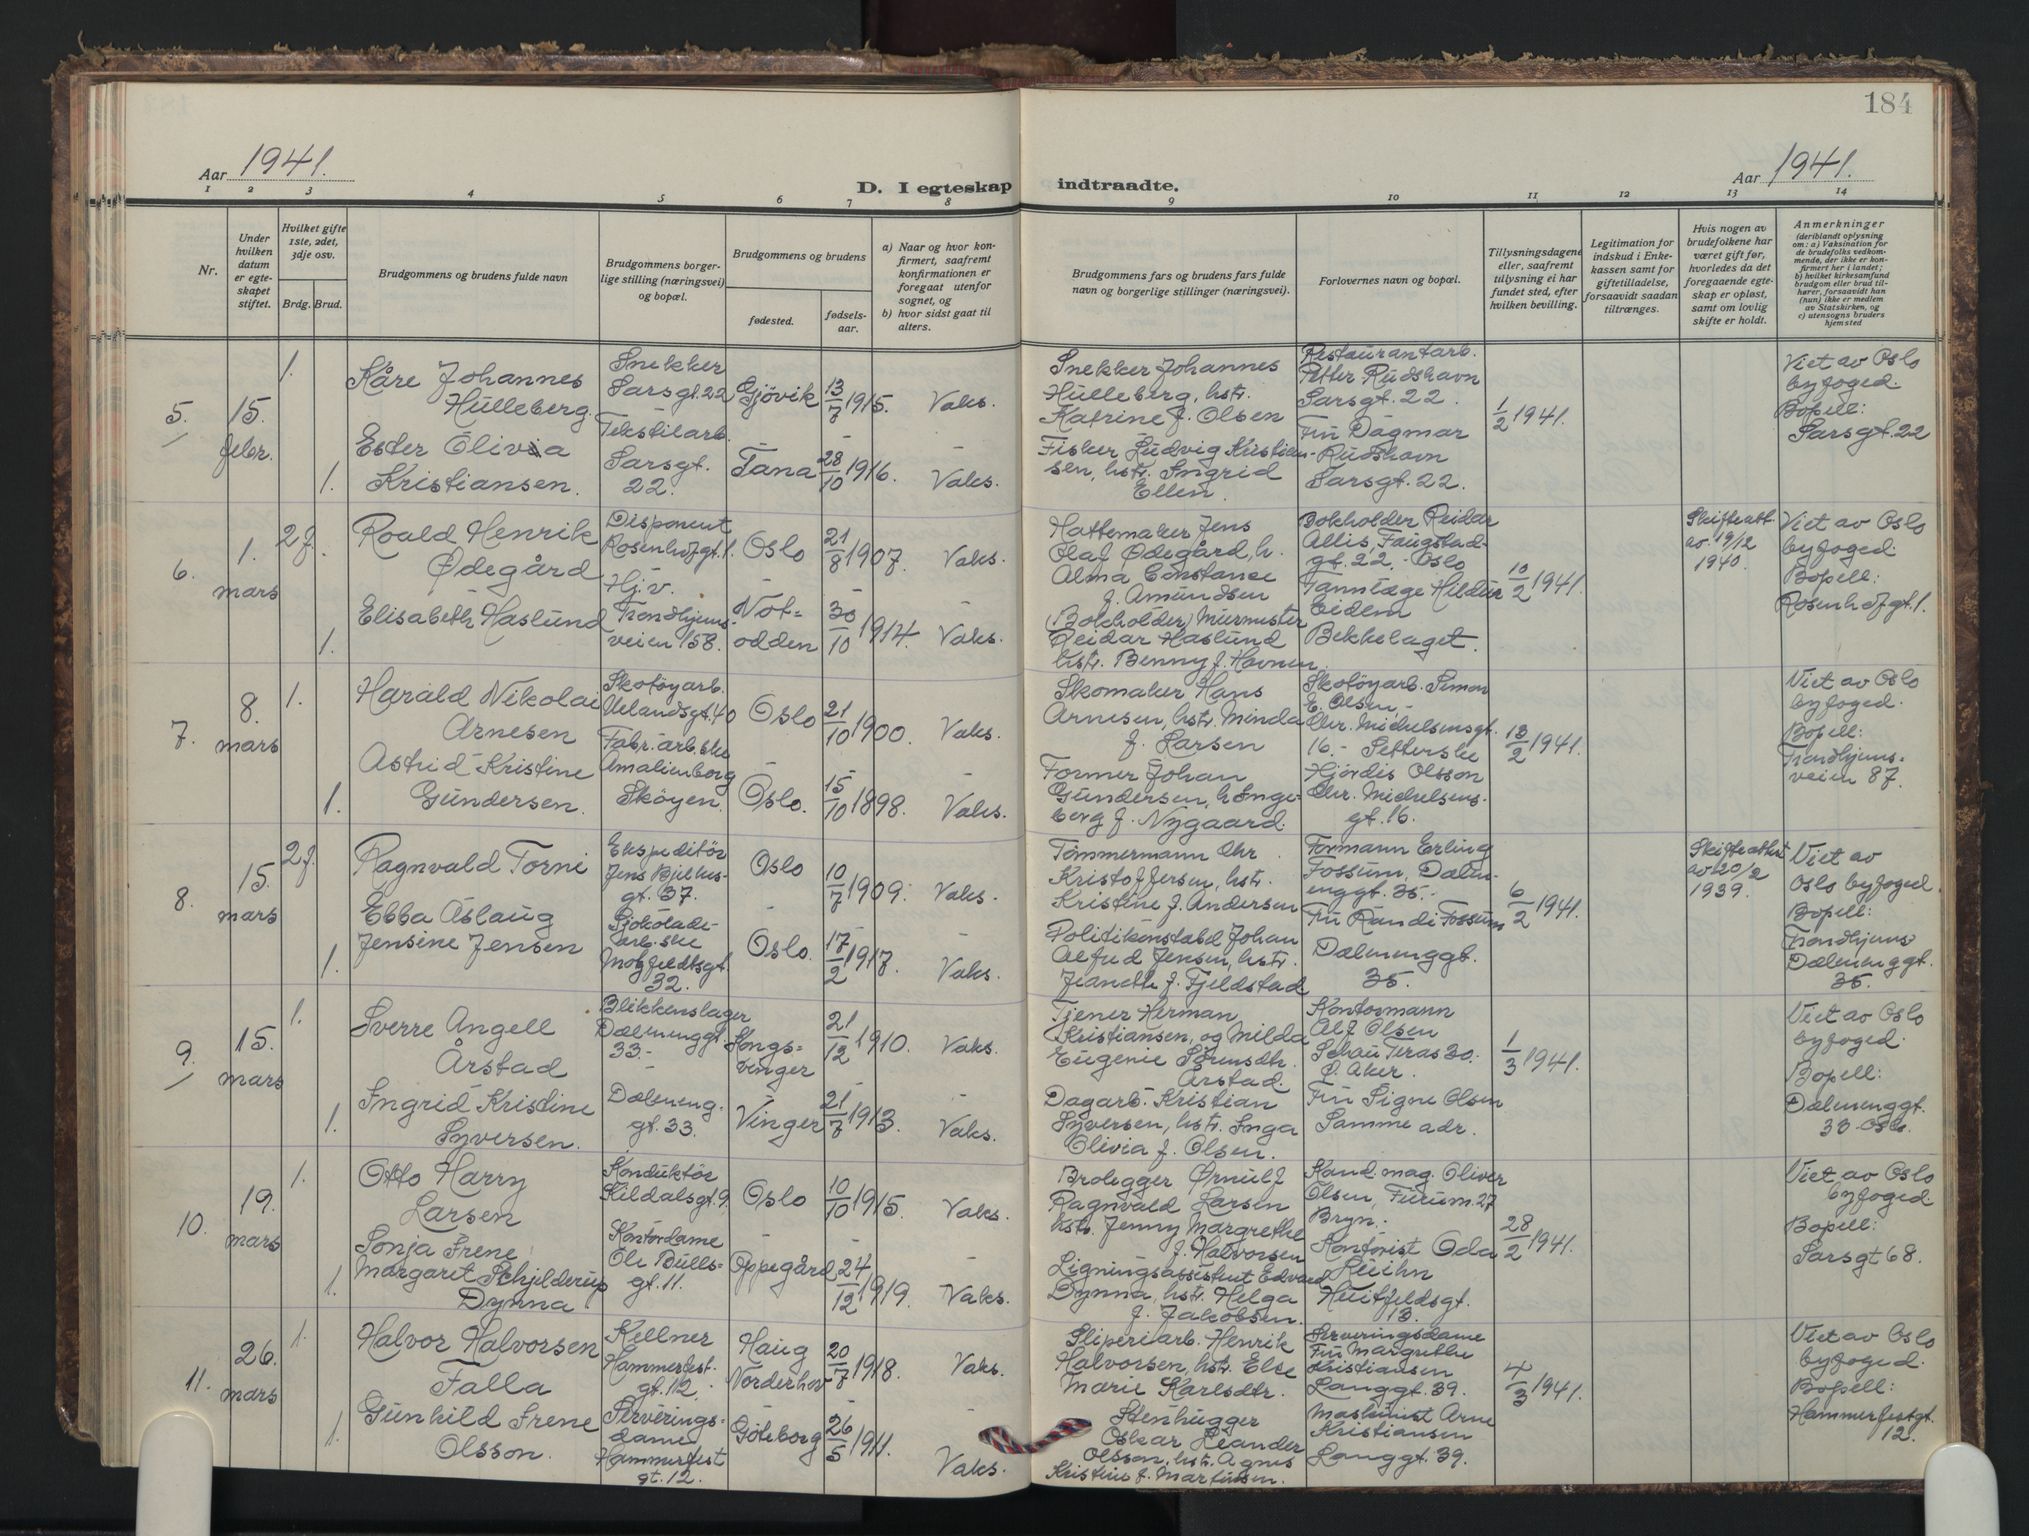 184
Aar 1941.
D. I egteskap indtraadte.
Aar 1941.
1 2 3 4 5 6 7 8 9 10 11 12 13 14
Nr.
Under hvilken datum er egteskapet stiftet.
Hvilket gifte 1ste, 2det, 3dje osv.
Brdg. Brud.
Brudgommens og brudens fulde navn
Brudgommens borgerlige stilling (næringsvei) og bopæl.
Brudgommens og brudens
fødested.
fødselsaar.
a) Naar og hvor konfirmert, saafremt konfirmationen er foregaat utenfor sognet, og
b) hvor sidst gaat til alters.
Brudgommens fars og brudens fars fulde navn og borgerlige stillinger (næringsvei).
Forlovernes navn og bopæl.
Tillysningsdagene eller, saafremt tillysning ei har fundet sted, efter hvilken bevilling.
Legitimation for indskud i Enkekassen samt for giftetilladelse, forsaavidt saadan tiltrænges.
Hvis nogen av brudefolkene har været gift før, hvorledes da det foregaaende egteskap er opløst, samt om lovlig skifte er holdt.
Anmerkninger
(deriblandt oplysning om: a) Vaksination for de brudefolks vedkommende, der ikke er konfirmert her i landet; b) hvilket kirkesamfund brudgom eller brud tilhører, forsaavidt han (hun) ikke er medlem av Statskirken, og c) utensogns bruders hjemsted
5. 15. febr.
1.
Kåre Johannes
Hulleberg.
Snekker
Sarsgt. 22
Gjövik 13/7 1915. Vaks.
Snekker Johannes
Hulleberg, hstr.
Katrine f. Olsen
Restaurantarb.
Petter Rudshavn
Sarsgt. 22.
1/2 1941.
Viet av Oslo
byfoged.
Bopell:
Sarsgt. 22
1.
Ester Olivia
Kristiansen.
Tekstilarb.
Sarsgt.
22.
Tana 28/10 1916. Vaks.
Fisker Ludvig Kristian-
sen, hstr. Ingrid
Ellen.
Fru Dagmar
Rudshavn
Sarsgt. 22.
6. 1. mars
2 f.
Roald Henrik
Ødegård
Disponent
Rosenhofgt. 1.
Oslo 21/8 1907. Vaks.
Hattemaker Jens
Olaf Ødegård, h.
Alma Constance
f. Amundsen
Bokholder Reidar
Allis Faugstad
gt. 22. - Oslo
10/2 1941.
Skifteatt.
av 19/12
1940.
Viet av Oslo
byfoged.
Bopell:
Rosenhofgt. 1.
1.
Elisabeth Haslund
Hj.v.
Trondhjems-
veien 158.
Not-
odden 30/10 1914. Vaks.
(Bokholder) Murmester
Reidar Haslund
hstr. Benny f. Havnen.
Tannlæge Hildur
Eidem
Bekkelaget.
7. 8. mars
1.
Harald Nikolai
Arnesen
Skotøyarb.
Uelandsgt. 40
Oslo 21/10 1900. Vaks.
Skomaker Hans
Arnesen, hstr. Minda
f. Larsen
Skotøyarb. Simon
E. Olsen, -
Chr. Michelsensgt.
16. -
13/2 1941.
Viet av Oslo
byfoged.
Bopell:
Trondhjems-
veien 87.
1.
Astrid Kristine
Gundersen.
Fabr. arb.ske
Amalienborg
Sköyen.
Oslo. 15/10 1898. Vaks.
Former Johan
Gundersen, h. Inge-
borg f. Nygaard.
Setterske
Hjördis Olsson
Chr. Michelsens-
gt. 16.
8. 15. mars
2 f.
Ragnvald Torni
Ekspeditör
Jens Bjelkes-
gt. 37.
Oslo 10/7 1909. Vaks.
Tömmermann Chr.
Kristoffersen, hstr.
Kristine f. Andersen
Formann Erling
Fossum, Dælen-
enggt. 35. -
6/2 1941.
Skifteattest
av 20/2
1939.
Viet av
Oslo byfoged.
Bopell:
Trondhjems
Dælenenggt.
35.
1.
Ebba Aslaug
Jensine Jensen
Sjokolade-
arb.ske
Motzfeldtsgt.
32.
Oslo. 17/2 1917. Vaks.
Politikonstabel Johan
Alfred Jensen, hstr.
Jeanette f. Fjeldstad
Fru Randi Fossum
Dælenenggt.
35.
9. 15. mars
1.
Sverre Angell
Årstad
Blikkenslager
Dælenenggt.
33. -
Kongs-
vinger 21/12 1910. Vaks.
Tjener Herman
Kristiansen, og Milda
Eugenie Sørensdtr.
Årstad.
Kontormann
Alf Olsen
Schau Teras 30.
Ö. Aker.
1/3 1941.
Viet av Oslo
byfoged.
Bopell:
Dælenenggt.
33 - Oslo.
1.
Ingrid Kristine
Syversen.
Dæleneng-
gt. 33.
Vinger 21/7 1913. Vaks.
Dagarb. Kristian
Syversen, hstr. Inga
Olivia f. Olsen.
Fru Signe Olsen
Samme adr.
10. 19. mars
1.
Otto Harry
Larsen
Konduktör
Kildalsgt. 9.
Oslo 10/10 1915. Vaks.
Brolegger Ørnulf
Ragnvald Larsen
hstr. Jenny Margrethe
f. Halvorsen
Kand. mag. Oliver
Olsen, Furum. 27
Bryn. -
28/2 1941.
Viet av Oslo
byfoged.
Bopell:
Sarsgt 68.
1.
Sonja Irene
Margaret Schjilderup
Dynna
Kontordame
Ole Bulls-
gt. 11.
Oppegård 24/12 1919. Vaks.
Ligningsassistent Edvard
Dynna, hstr. Helga
f. Jakobsen.
Kontorist Oda
Huitfeldsgt.
13.
11. 26. mars
1.
Halvor Halvorsen
Falla
Kellner
Hammerfest-
gt. 12.
Haug
Norderhov 20/7 1918. Vaks.
Sliperiarb. Henrik
Halvorsen, hstr. Else
Marie Karlsdtr.
Serveringsdame
Fru Margrethe
Kristiansen
Langgt. 39.
4/3 1941.
Viet av Oslo
byfoged.
Bopell:
Hammerfestgt.
12.
1.
Gunhild Irene
Olsson.
Serverings-
dame
Hammerfest
gt. 12.
Göteborg 26/5 1911. Vaks.
Stenhugger
Oskar Leander
Olsson, hstr. Agnes
Kristine f. Martinsen.
Maskinist Arne
Kristiansen
Langgt. 39.